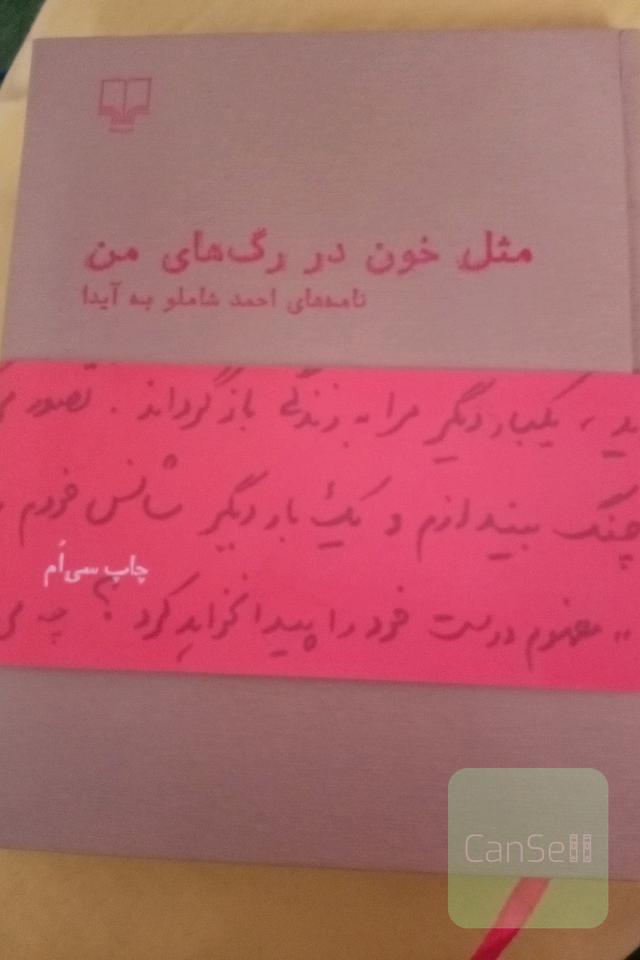 مثل خون در رگ‌های من
نامه‌های احمد شاملو به آیدا
ید، یکبار دیگر مرا به زندگی باز گرداند. تصور
چنگ بیندازم و یک بار دیگر شانس خودم
چاپ سی‌اُم
مفهوم درست خود را پیدا نخواهد کرد؟ چه
CanSell